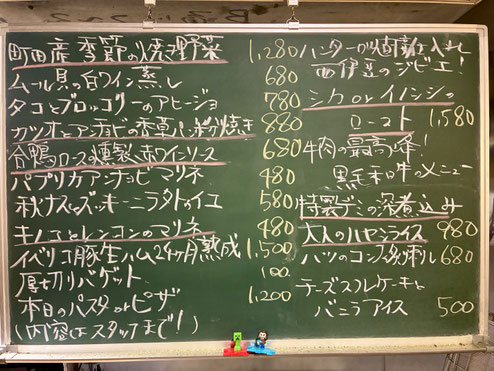 町田産季節の焼き野菜 1,280
ムール貝の白ワイン蒸し 680
タコとブロッコリーのアヒージョ 780
カツオとアンチョビの香草パン粉焼き 880
合鴨ロースの燻製、赤ワインソース 680
パプリカアンチョビマリネ 480
秋ナスとズッキーニラタトゥイエ 580
キノコとレンコンのマリネ 480
イベリコ豚生ハム24ヶ月熟成 1,500
厚切りバゲット 100
本日のパスタorピザ 1,200
(内容はスタッフまで!)
ハンターが
西伊豆のジビエ!
シカorイノシシの
ロースト 1,580
牛肉の最高峰!
黒毛和牛のメニュー
特製デミの深煮込み
大人のハヤシライス 980
ハツのコンフ 680
チーズスフレケーキと
バニラアイス 500